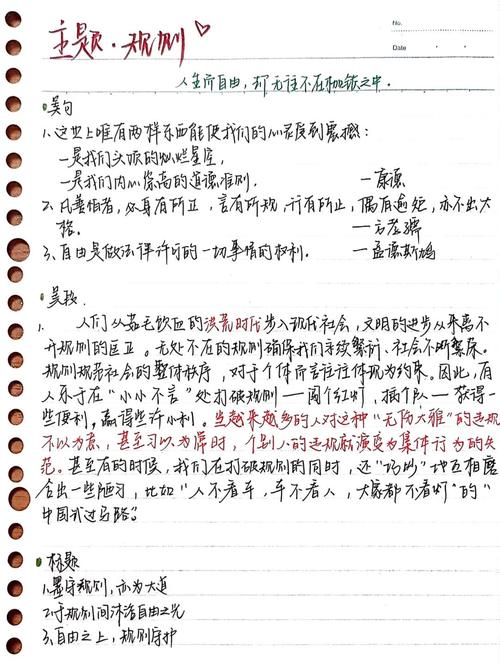 主题·规则
No.
Date
人生而自由,却无往不在枷锁之中.
美句
1、这世上唯有两样东西能使我们的心灵受到震撼:
一是我们头顶的灿烂星空,
一是我们内心崇高的道德准则. —康德
2、凡善怕者,必身有所正,言有所规,行有所止,偶有逾矩,亦不出大
格. —方孝孺
3、自由是做法律许可的一切事情的权利. —孟德斯鸠
美段.
1. 人们从茹毛饮血的洪荒时代步入现代社会,文明的进步从来离不
开规则的匡正。无处不在的规则确保我们享续繁衍、社会不断繁荣。
规则规范社会的整体秩序,对于个体而言往往体现为约束。因此,有
人乐于在“小小不言”处打破规则——闯个红灯,插个队——获得一
些便利,赢得些许小利。当越来越多的人对这种“无伤大雅”的违规
不以为意,甚至习以为常时,个别人的违规就演变为集体行为的失
范。甚至有的时候,我们在打破规则的同时,还“巧妙”地互相磨
合出一些陋习,比如“人不看车,车不看人,大家都不看灯”的“
中国式过马路”。
标题
1.墨守规则,亦为大道
2.于规则间沐浴自由之光
3、自由之上,规则守护